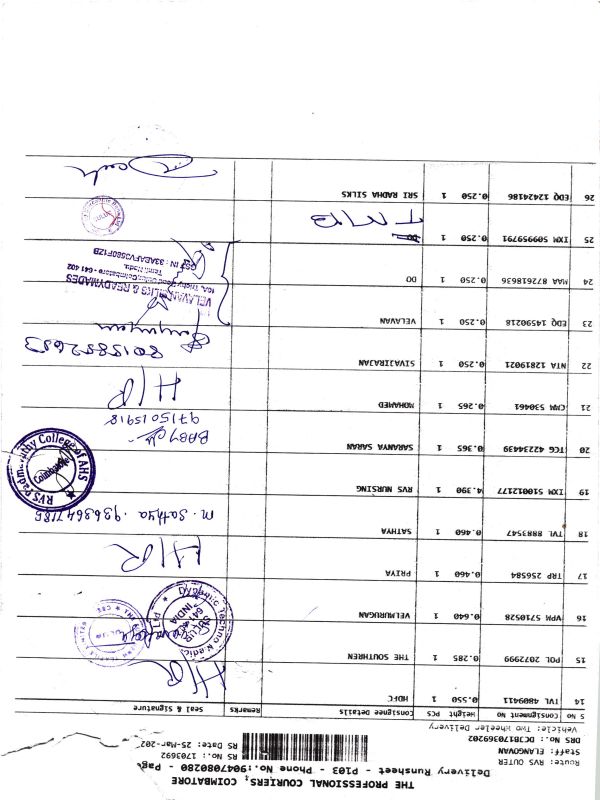 THE PROFESSIONAL COURIERS, COIMBATORE
Delivery Runsheet - P103 - Phone No.:9047080280 - Page
Route: RVS OUTER
Staff: ELANGOVAN
DRS No.: DCJB170369202
Vehicle: Two Wheeler Delivery
RS No.: 1703692
RS Date: 25-Mar-202
S No Consignment No Height PCS Consignee Details Remarks Seal & Signature
14 TVL 4809411 0.550 1 HDFC
15 POL 2072999 0.285 1 THE SOUTHREN
16 VPM 5710528 0.640 1 VELMURUGAN
17 TRP 256584 0.460 1 PRIYA
18 TVL 8883547 0.460 1 SATHYA M. Sathya 9363647185
19 IXM 510012177 4.390 1 RVS NURSING
RVS Padmavathy College of AHS
Coimbatore
20 TCG 42234439 0.365 1 SARANYA SARAN BABY
9715015918
21 CMM 530461 0.265 1 MOHAMED
22 NTA 12819021 0.250 1 SIVAIRAJAN 8015852653
23 EDQ 14590218 0.250 1 VELAVAN
24 MAA 872618636 0.250 1 DO
VELAVAN SILKS & READYMADES
10A, Trichy Road, Sulur, Coimbatore - 641 402
Tamil Nadu.
GST IN : 33AEAFV3580F1ZB
25 IXM 509959791 0.250 1 TMB
26 EDQ 12424186 0.250 1 SRI RADHA SILKS